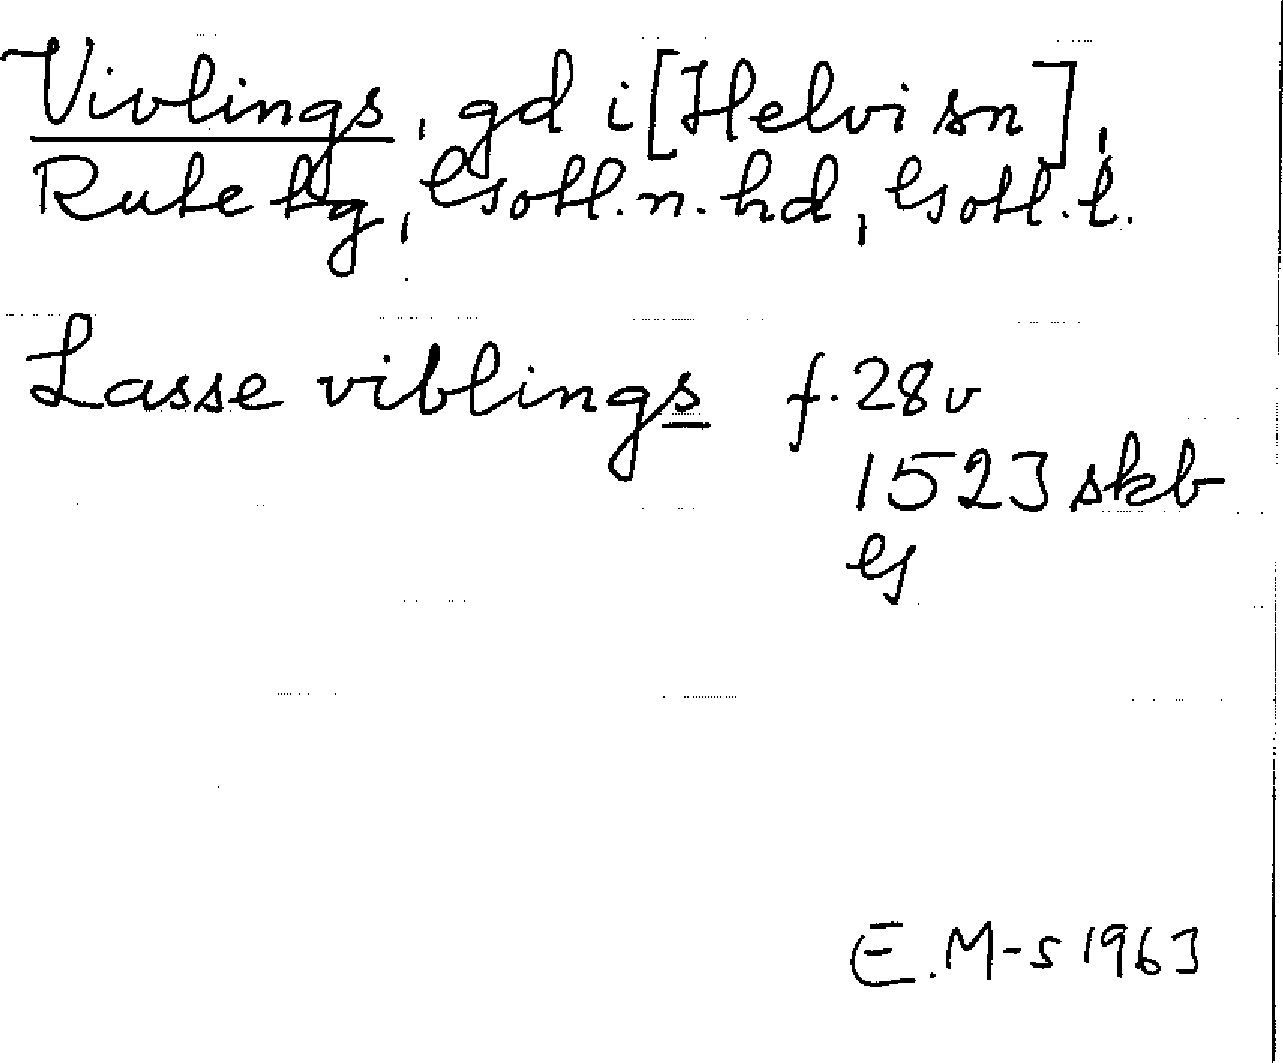 Vivlings, gd i [Helvi sn],
Rute tg, Gotl. n. hd, Gotl. l.
Lasse viblings f. 28 v
1523 skb
G
E. M-s 1963